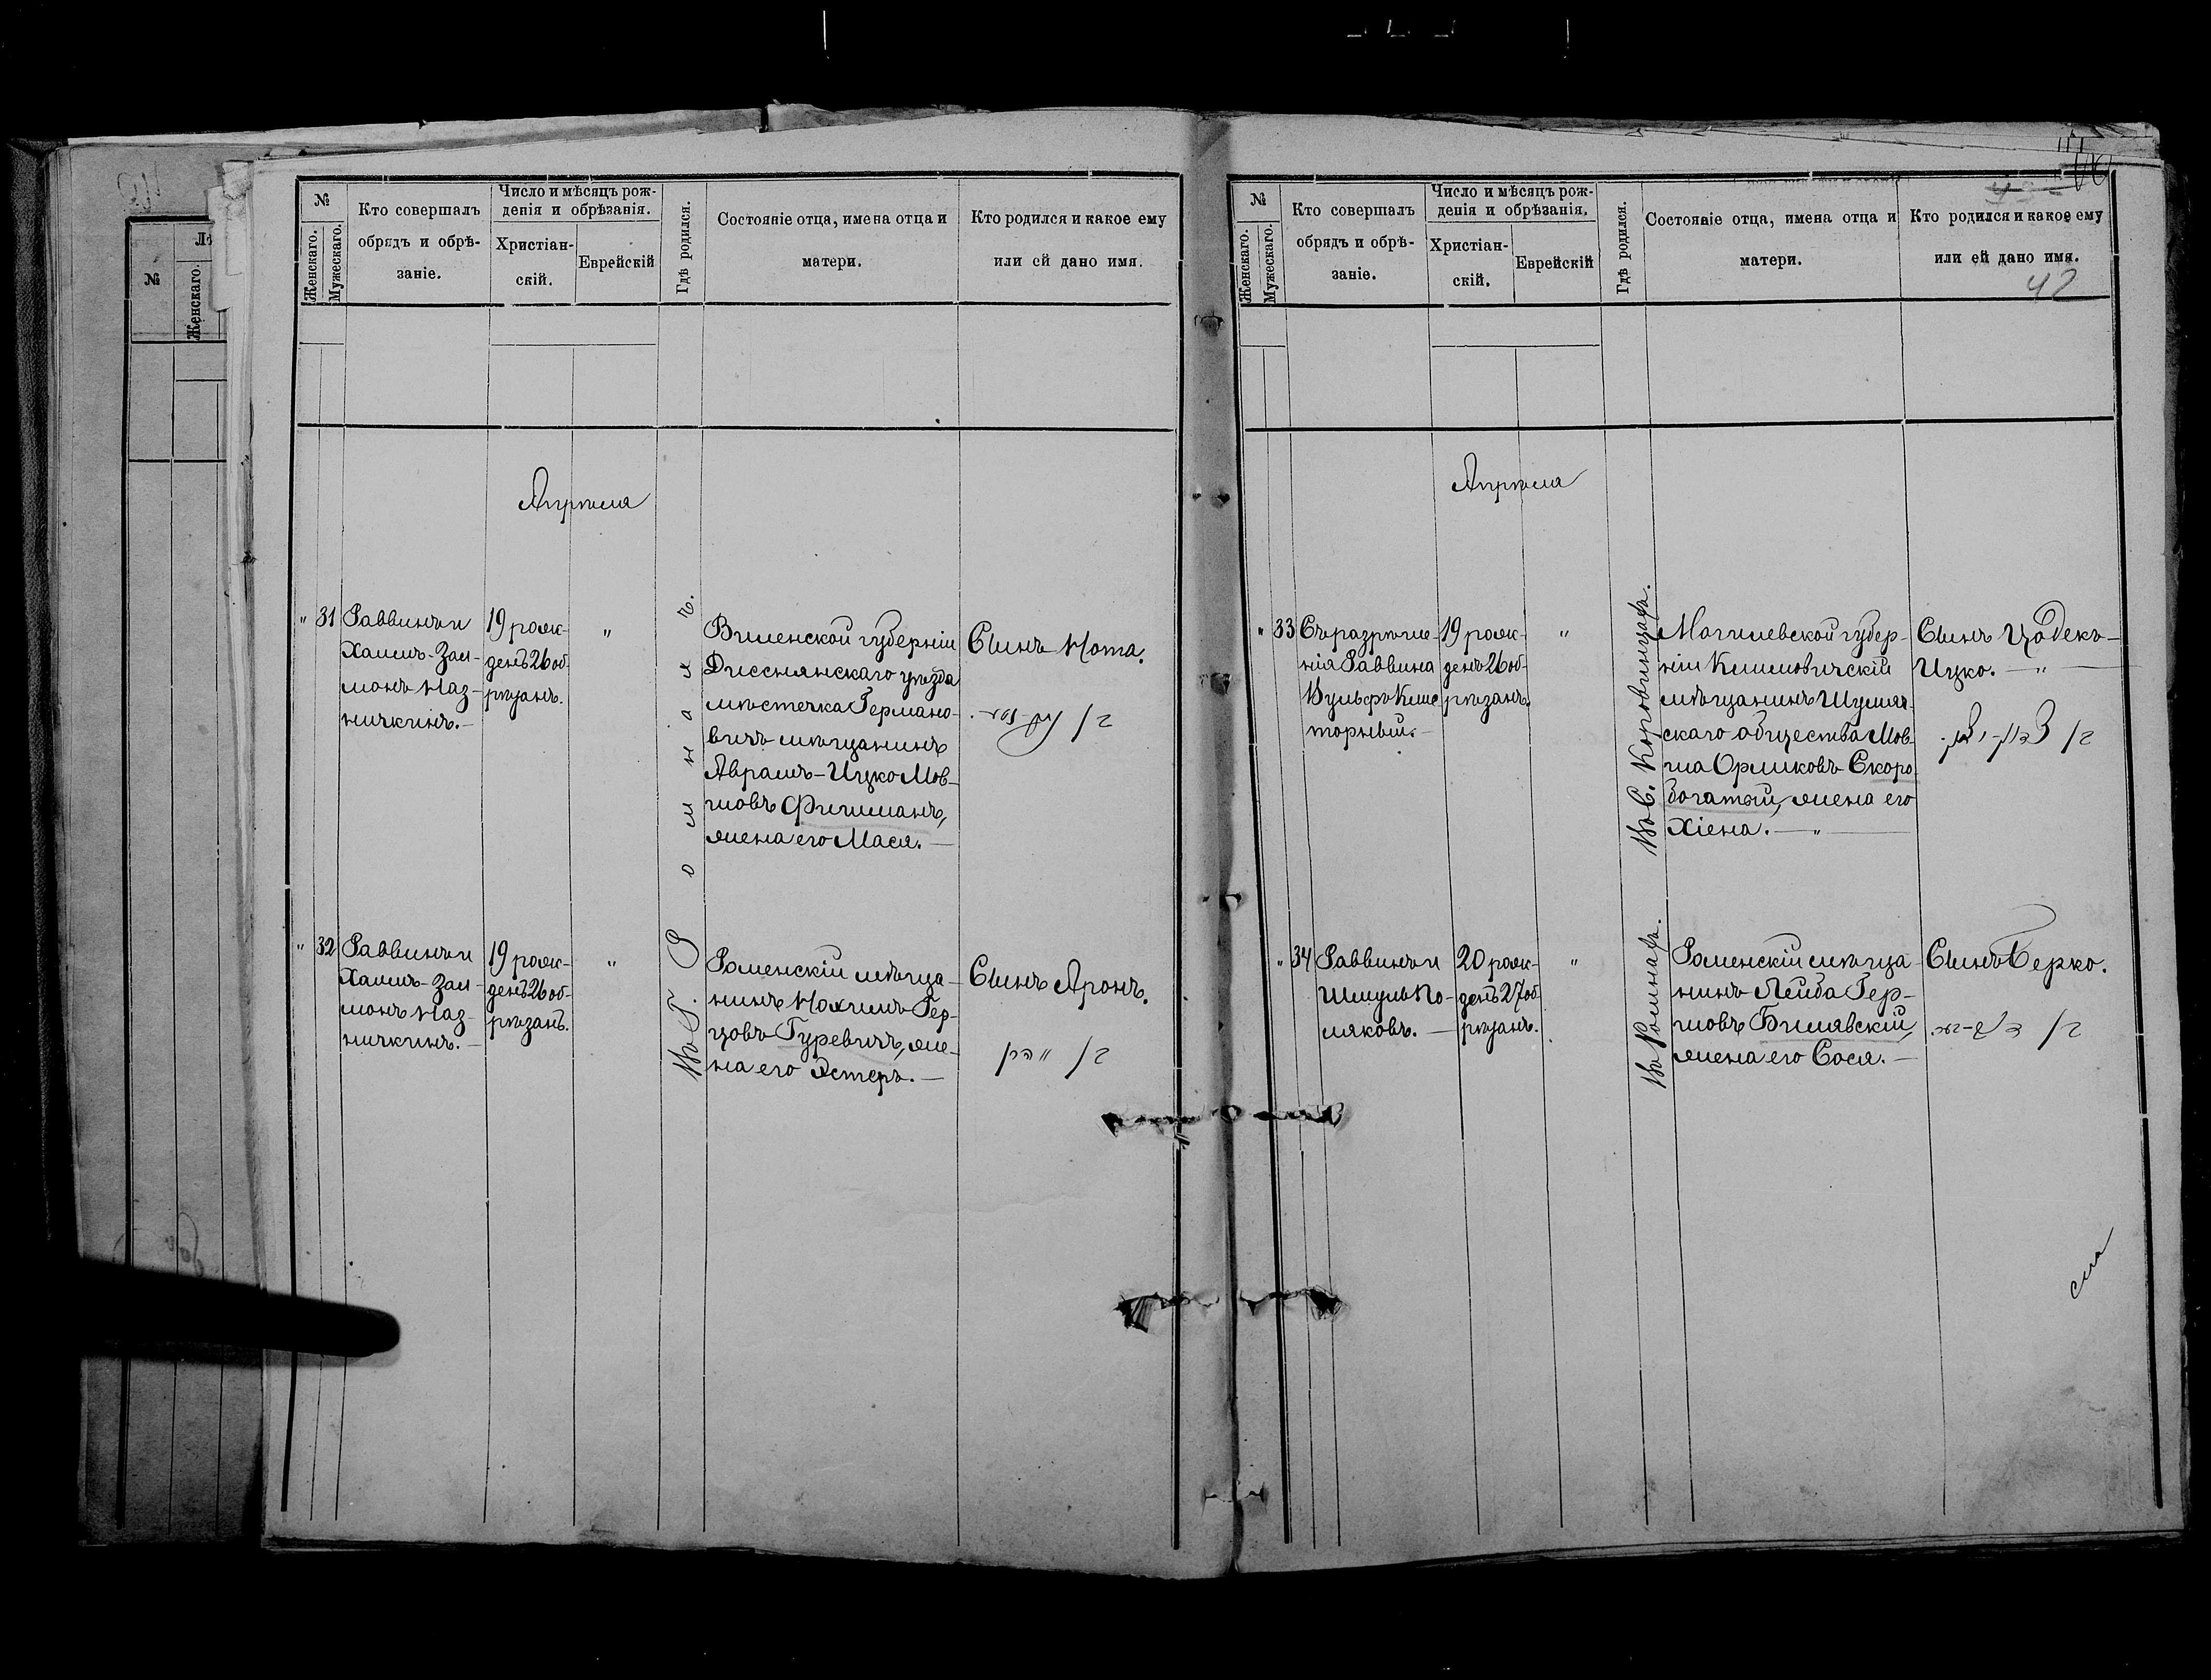 №
Женскаго.
Мужескаго.
Кто совершалъ
обрядъ и обрѣ-
заніе.
Число и мѣсяцъ рож-
денія и обрѣзанія.
Христіан-
скій.
Еврейскій
Гдѣ родился.
Состояніе отца, имена отца и
матери.
Кто родился и какое ему
или ей дано имя.
Апрѣля
" 31
Раввинъ и
Хаимъ-Зал-
монъ Наз-
ничкинъ.—
19 рож-
денъ 26 об-
рѣзанъ.
"
Въ Г. Ромнахъ.
Виленской губерніи
Дисснянскаго уѣзда
мѣстечка Германо-
вичъ мѣщанинъ
Абрамъ-Ицко Мов-
шовъ Фишманъ,
жена его Мася.—
Сынъ Нота.
" 32
Раввинъ и
Хаимъ-Зал-
монъ Наз-
ничкинъ.—
19 рож-
денъ 26 об-
рѣзанъ.
"
Роменскій мѣща-
нинъ Нохимъ Гер-
цовъ Гуревичъ, же-
на его Эстеръ.—
Сынъ Аронъ.
№
Женскаго.
Мужескаго.
Кто совершалъ
обрядъ и обрѣ-
заніе.
Число и мѣсяцъ рож-
денія и обрѣзанія.
Христіан-
скій.
Еврейскій
Гдѣ родился.
Состояніе отца, имена отца и
матери.
Кто родился и какое ему
или ей дано имя.
42
Апрѣля
" 33
Съ разрѣше-
нія Раввина
Вульфъ Клис
торный.—
19 рож-
денъ 26 об-
рѣзанъ.
"
Въ С. Коровинцахъ.
Могилевской губер-
ніи Климовичскій
мѣщанинъ Шумяч-
скаго общества Мов-
ша Орликовъ Скоро-
богатый, жена его
Хіена.—"—
Сынъ Цодекъ-
Ицко.—"—
" 34
Раввинъ и
Шмуль По-
ляковъ.—
20 рож-
денъ 27 об-
рѣзанъ.
"
Въ Ромнахъ.
Роменскій мѣща-
нинъ Лейба Гер-
шовъ Билявскій,
жена его Сося.—
Сынъ Берко.